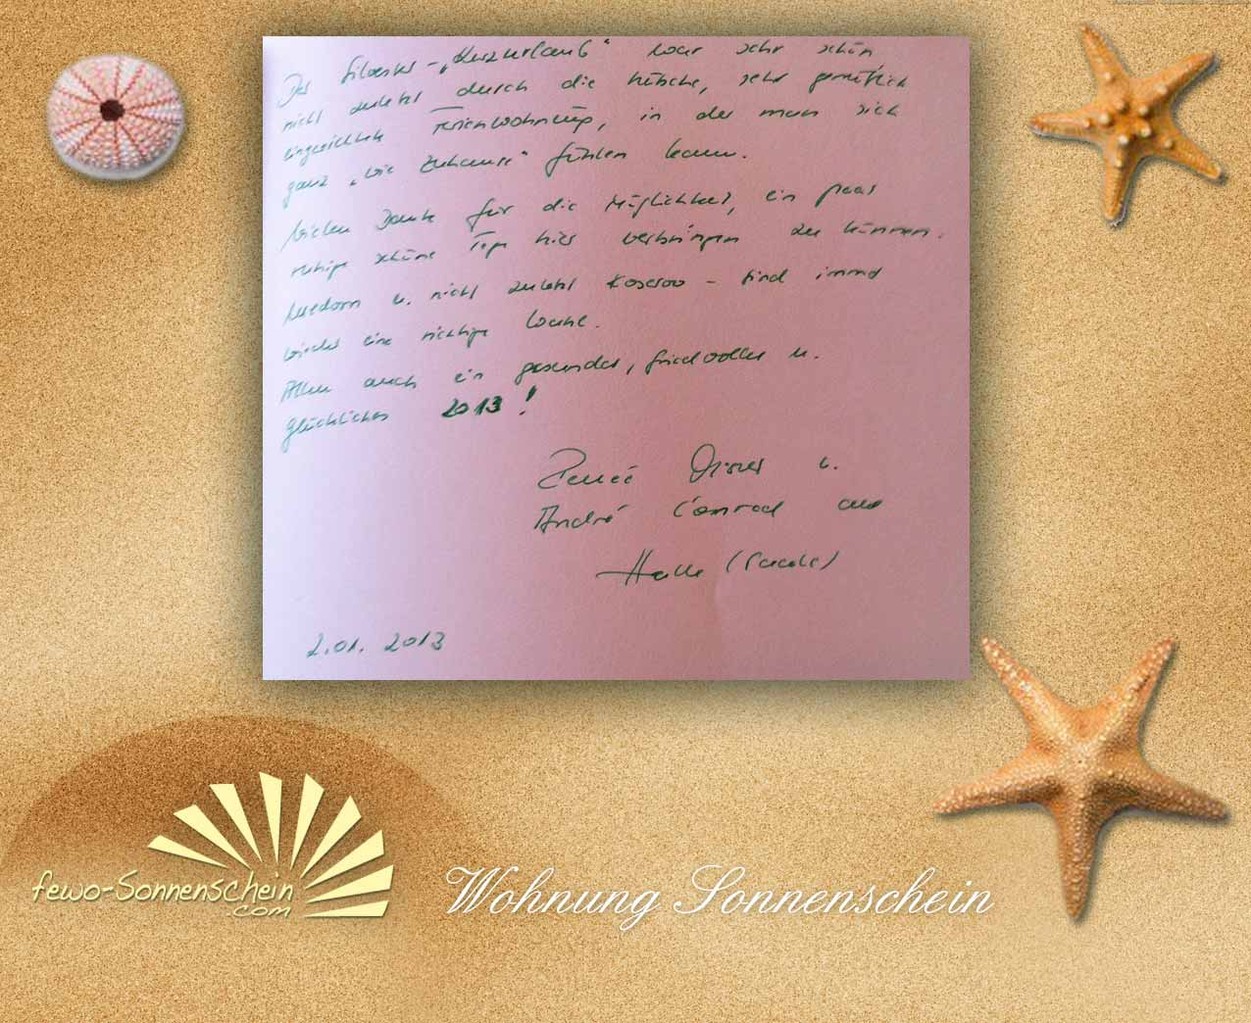 Der Silvester-„Kurzurlaub“ war sehr schön
nicht zuletzt durch die hübsche, sehr gemütlich
eingerichtete Ferienwohnung, in der man sich
ganz „wie Zuhause“ fühlen kann.
Vielen Danke für die Möglichkeit, ein paar
ruhige schöne Tage hier verbringen zu können.
Usedom u. nicht zuletzt Koserow - sind immer
wieder eine richtige Wahl.
Allen auch ein gesundes, friedvolles u.
glückliches 2013!
Reneé u.
André Conrad aus
Halle (Saale)
2.01. 2013
fewo-Sonnenschein
.com
Wohnung Sonnenschein